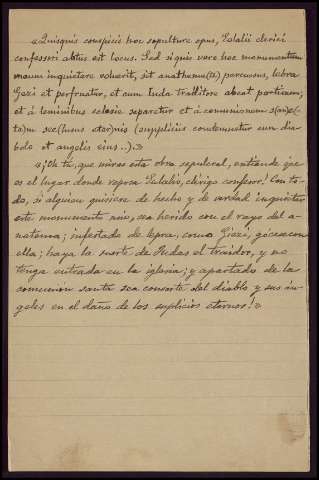 «Quisquis conspicis hoc sepulture opus, Eolalii clerici
confessori abtus est locus. Sed si quis vero hoc monumentum
meum inquietare voluerit, sit anathema(ta) percussus, lebra
Gezi et perfruatur, et cum Iuda traditore abeat portionem;
et á leminibus eclesie separetur et á comunionem s(an)c(-
ta)m sec(lusus eter)nis (suppliciis condemnetur cum dia-
bolo et angelis eius ..).»
«¡Oh tú, que miras esta obra sepulcral, entiende que
es el lugar donde reposa Eulalio, clérigo confesor! Con to-
do, si alguien quisiere de hecho y de verdad inquietar
este monumento mio, sea herido con el rayo del a-
natema; infestado de lepra, como Giezi, gócese con
ella; haya la suerte de Judas el traidor, y no
tenga entrada en la iglesia; y apartado de la
comunión santa sea consorte del diablo y sus án-
geles en el daño de los suplicios eternos!»